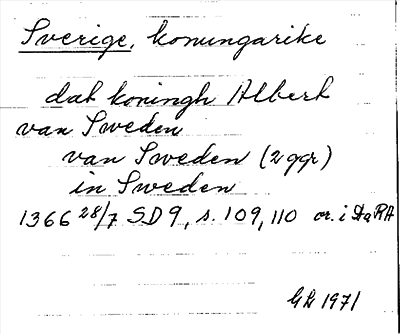 Sverige, konungarike
dat koningh Albert
van Sweden
van Sweden (2 ggr)
in Sweden
1366 28/7 SD 9, s. 109, 110 or. i StaRA
GL 1971